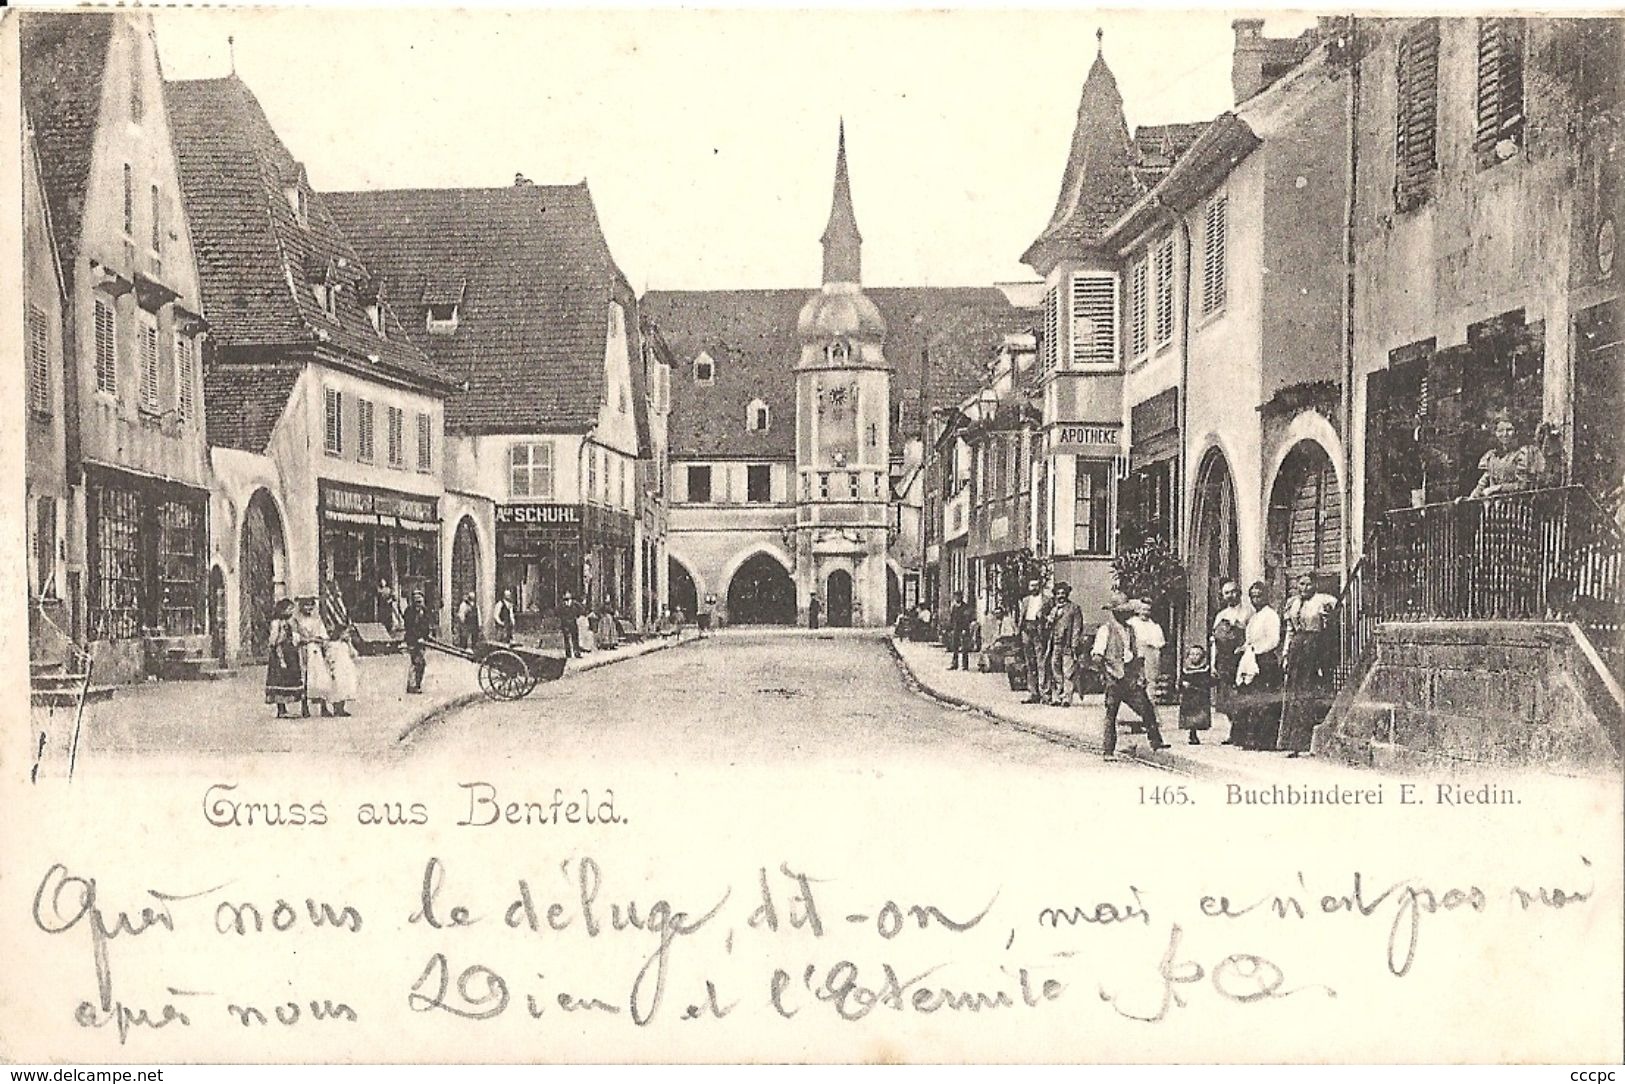 APOTHEKE
SCHUHL
Gruss aus Benfeld.
1465. Buchbinderei E. Riedin.
Après nous le déluge, dit-on, mais ce n'est pas vrai
après nous Dieu et l'Eternité.
www.delcampe.net
cccpc